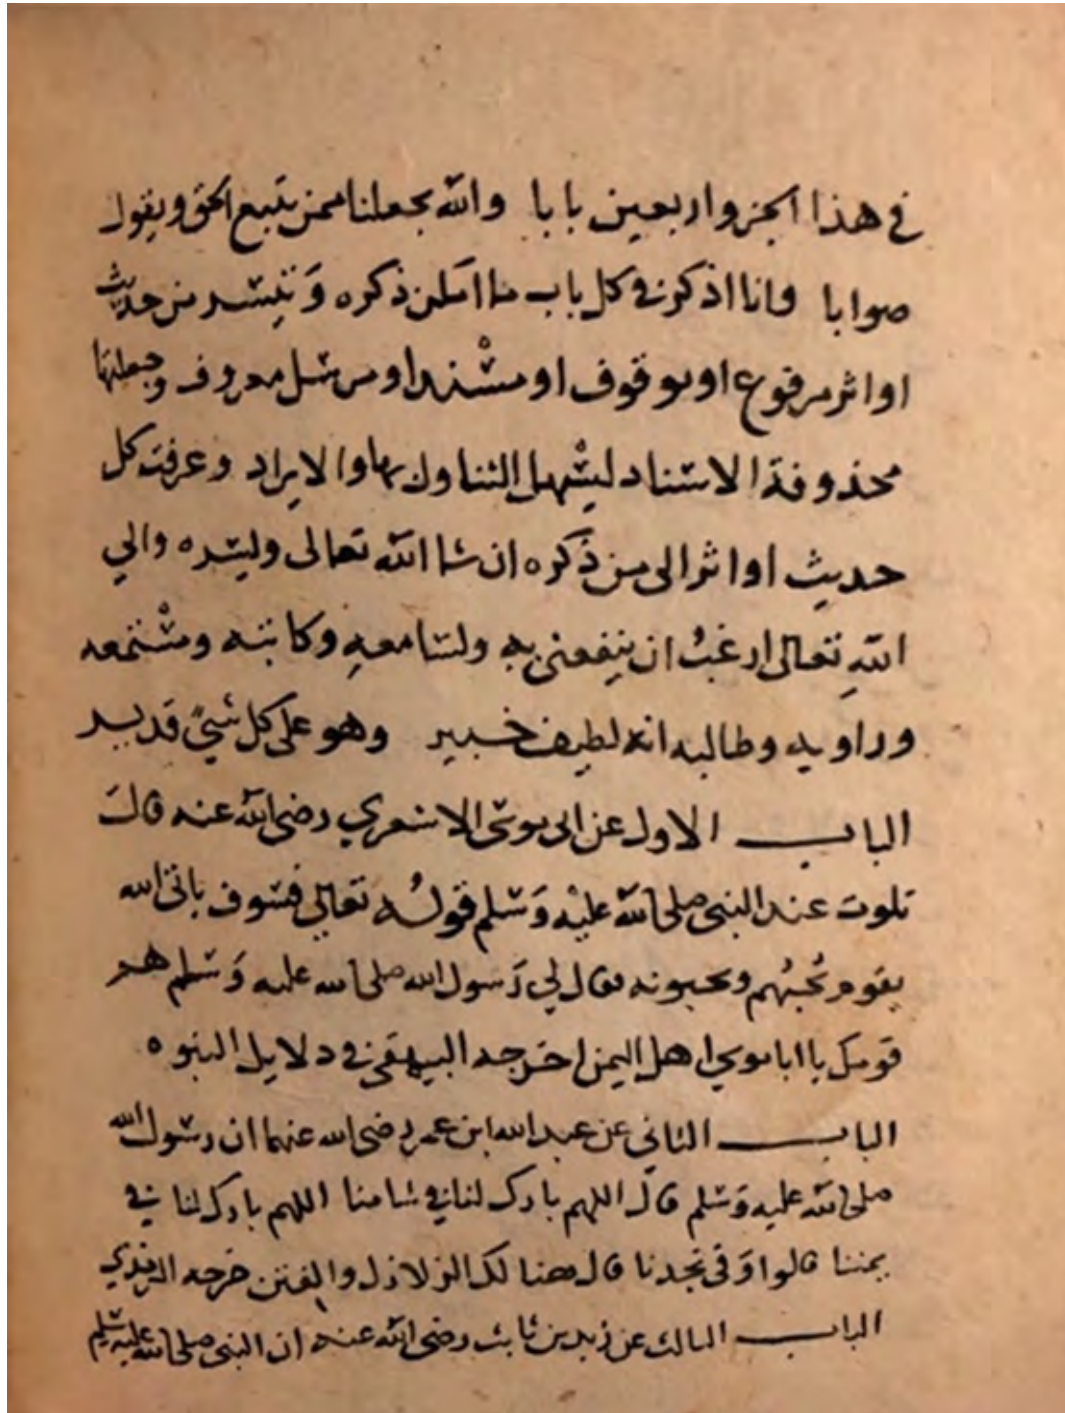 في هذا الجزو اربعين بابا والله يجعلنا ممن يتبع الحق ويقول
صوابا وانا اذكر في كل باب ما امكن ذكره وتيسر من حديث
او اثر مرفوع او موقوف او مسند او مرسل معروف وجعلتها
محذوفة الاسناد ليسهل التناول بها والايراد وعرفت كل
حديث او اثر الى من ذكره ان شا الله تعالى وليسره والي
الله تعالى ارغب ان ينفعني به ولسامعه وكاتبه ومستمعه
وراويه وطالبه انه لطيف خبير وهو على كل شيء قدير
الباب الاول عن ابى موسى الاشعري رضى الله عنه قال
تلوت عند النبى صلى الله عليه وسلم قوله تعالى فسوف ياتى الله
بقوم يحبهم ويحبونه فقال لي رسول الله صلى الله عليه وسلم هم
قومك يا ابا موسي اهل اليمن اخرجه البيهقى في دلايل النبوه
الباب الثاني عن عبد الله ابن عمر رضى الله عنهما ان رسول الله
صلى الله عليه وسلم قال اللهم بارك لنا في شامنا اللهم بارك لنا في
يمننا قالوا وفى نجدنا قال هنا لك الزلازل والفتن خرجه الترمذي
الباب الثالث عن زيد بن ثابت رضى الله عنه ان النبى صلى الله عليه وسلم